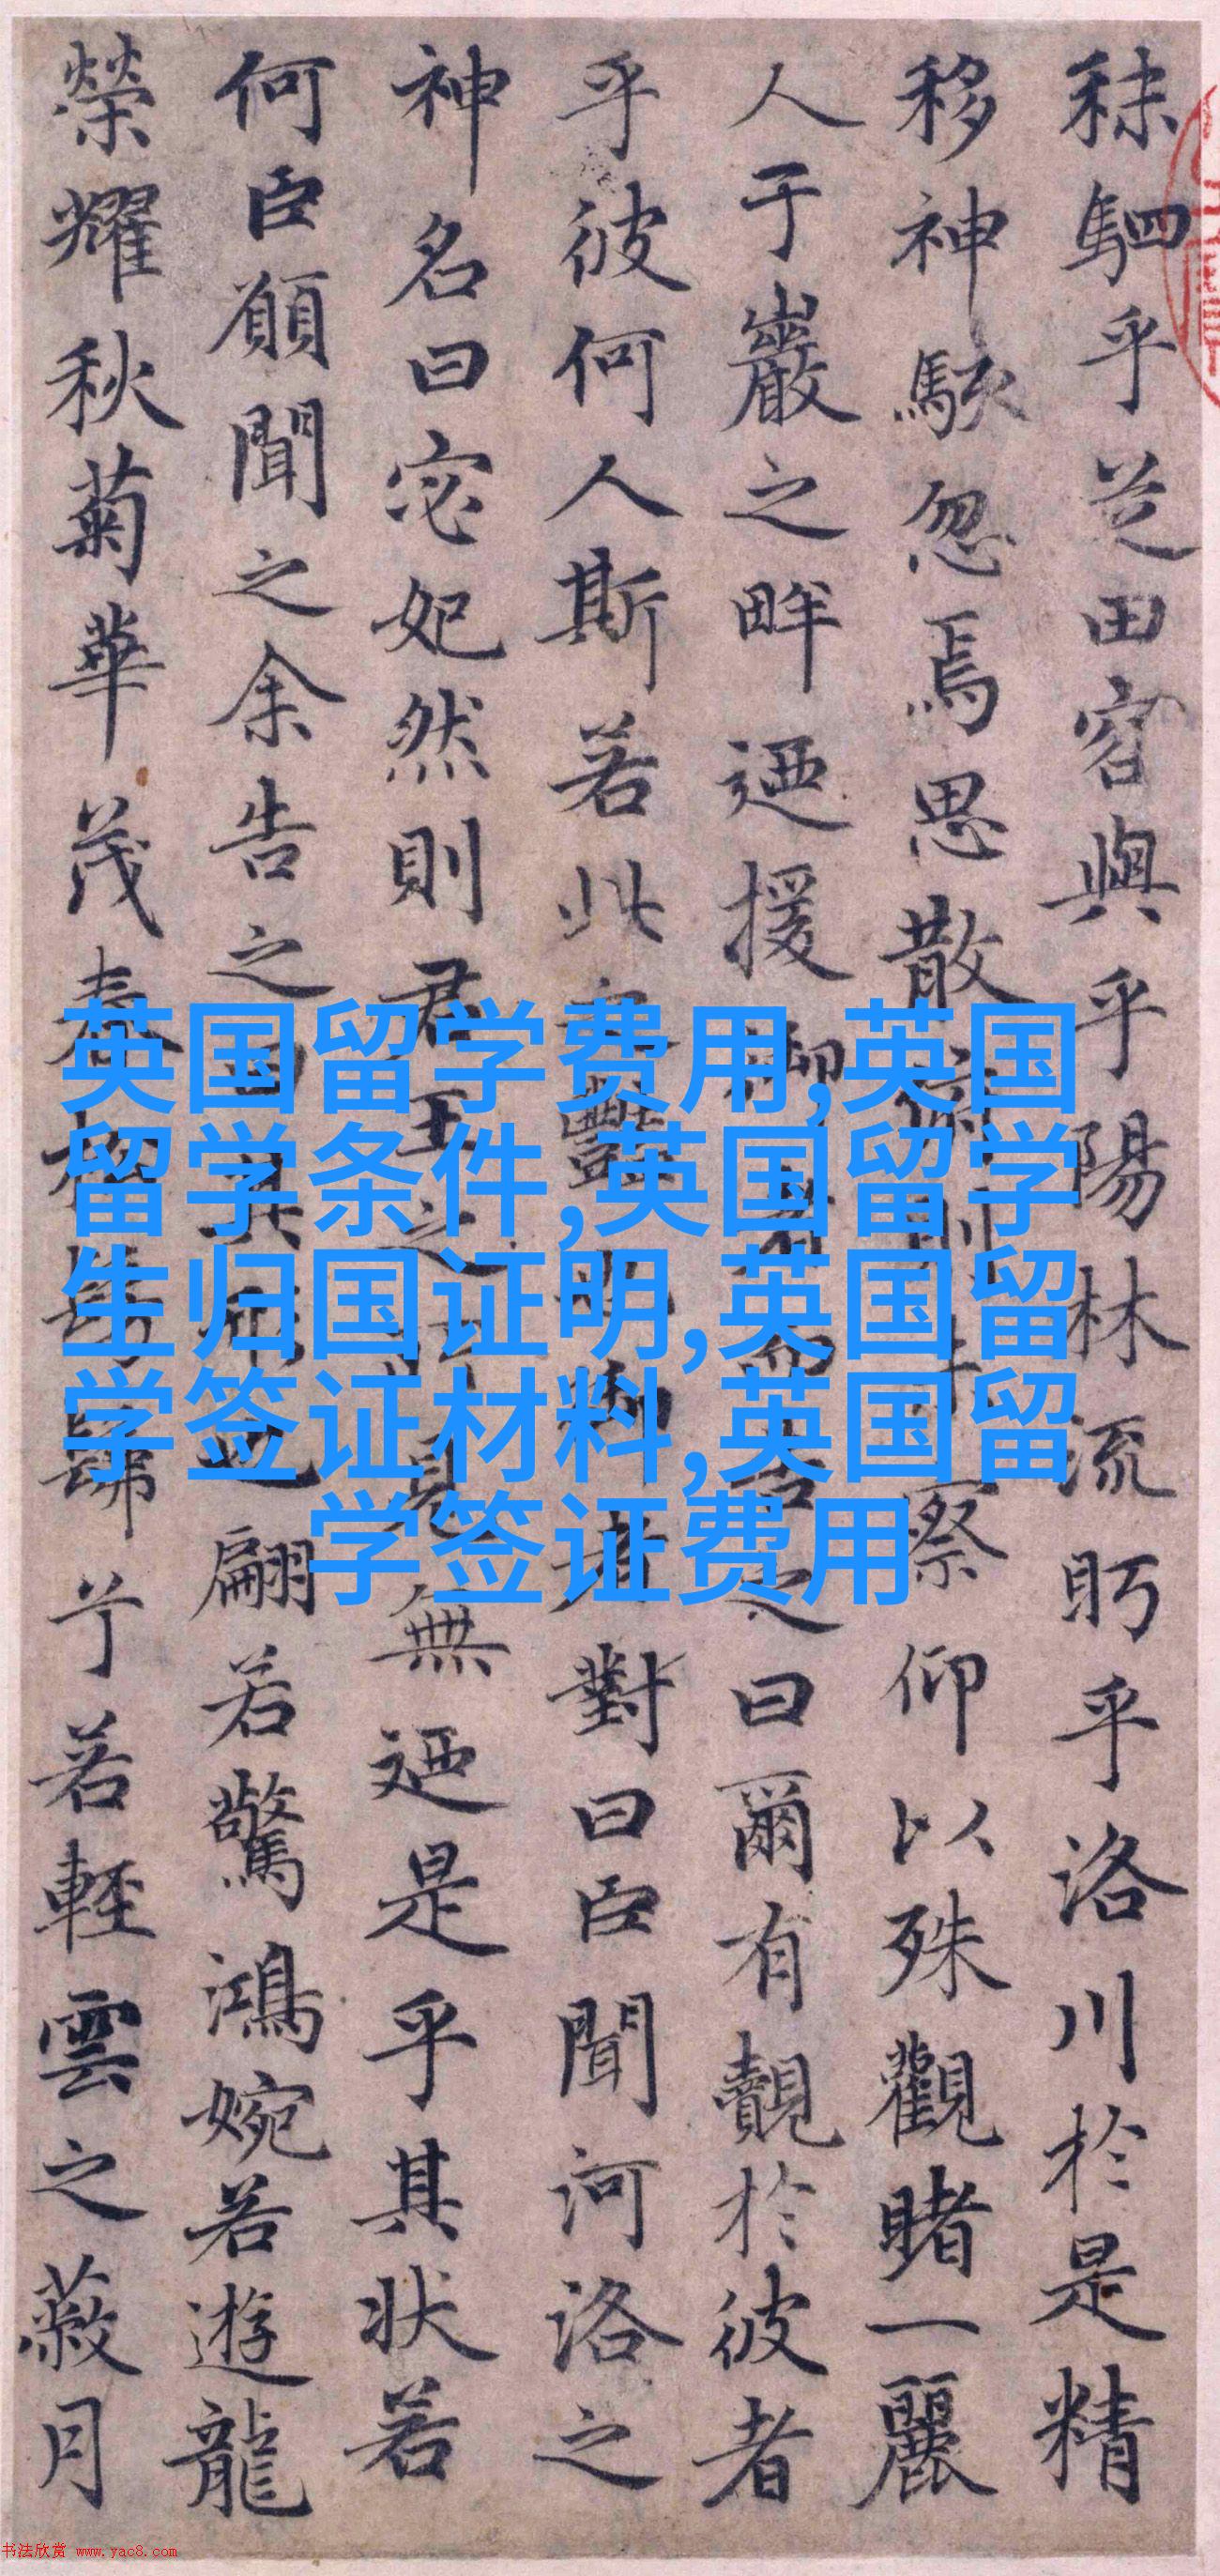 秣駟乎芝田容與乎陽林流眄乎洛川於是精
移神駭忽焉思散俯則未察仰以殊觀睹一麗
人于巖之畔迺援御者而告之曰爾有覿於彼者
乎彼何人斯若此之豔也御者對曰臣聞河洛之
神名曰宓妃然則君王之所見無迺是乎其状若
何臣願聞之余告之曰其形也翩若驚鴻婉若遊龍
榮耀秋菊華茂春松髣髴兮若輕雲之蔽月
英国留学费用,英国
留学条件,英国留学
生归国证明,英国留
学签证材料,英国留
学签证费用
书法欣赏 www.yac8.com